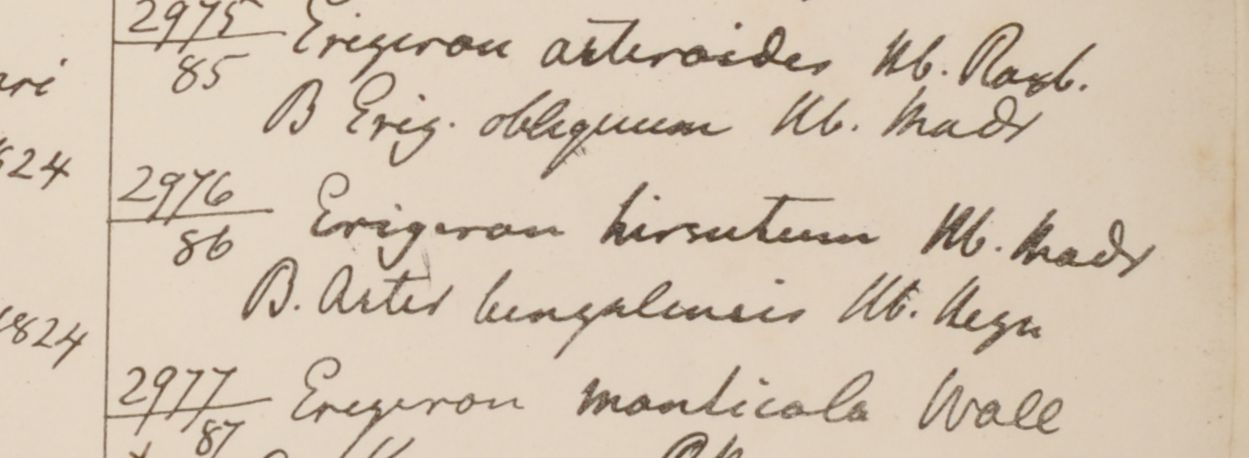 2975/85 Erigeron asteroides Hb. Roxb.
B Erig. obliquum Hb. Madr
624
2976/86 Erigeron hirsutum Hb. Madr
B. Aster bengalensis Hb. Heyn
1824
2977/87 Erigeron monticola Wall